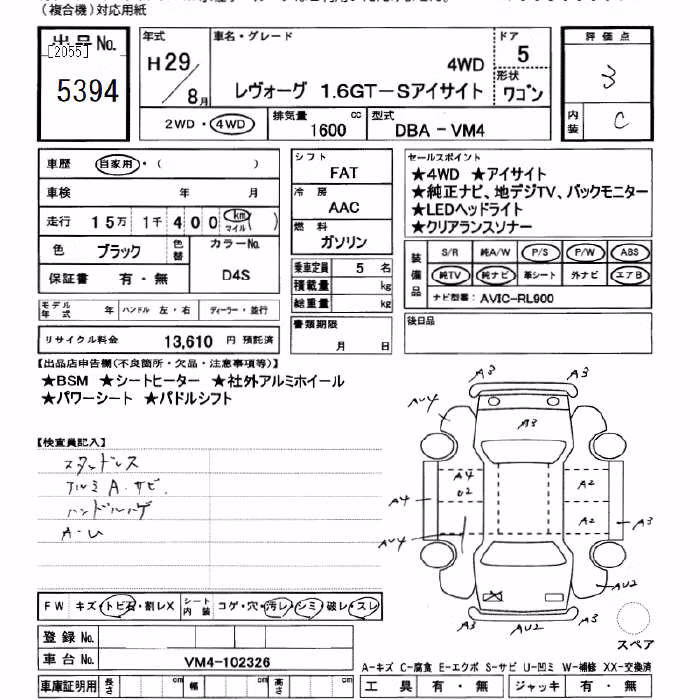 (複合機)対応用紙
出品No.
[2055]
5394
年式
H29/8月
車名・グレード
4WD
レヴォーグ 1.6GT-Sアイサイト
ドア
5
形状
ワゴン
評価点
3
内装
C
2WD・4WD
排気量
1600 cc
型式
DBA-VM4
車歴 自家用・( )
車検 年 月
走行 15万 1千 400 (km マイル)
色 ブラック
色替
カラーNo.
D4S
保証書 有・無
シフト
FAT
冷房
AAC
燃料
ガソリン
乗車定員 5 名
積載量 kg
総重量 kg
セールスポイント
★4WD ★アイサイト
★純正ナビ、地デジTV、バックモニター
★LEDヘッドライト
★クリアランスソナー
装備品
S/R 純A/W P/S P/W ABS
純TV 純ナビ 革シート 外ナビ エアB
ナビ型番: AVIC-RL900
モデル年式 年 ハンドル 左・右 ディーラー・並行
リサイクル料金 13,610 円 預託済
書類期限
月 日
後日品
【出品店申告欄(不良箇所・欠品・注意事項等)】
★BSM ★シートヒーター ★社外アルミホイール
★パワーシート ★パドルシフト
【検査員記入】
スタッドレス
アルミA.サビ.
ハンドルハゲ
A-U
A3 A3
AU4
A3
A4 A4 U2 A2
A2 A3
AU4
AU2
A3 AU2 A3
スペア
FW キズ・トビ石・割レX
シート内装 コゲ・穴・汚レ・シミ・破レ・スレ
登録No.
車台No. VM4-102326
車庫証明用 長さ cm 幅 cm 高さ cm
A-キズ C-腐食 E-エクボ S-サビ U-凹ミ W-補修 XX-交換済
工具 有・無 ジャッキ 有・無